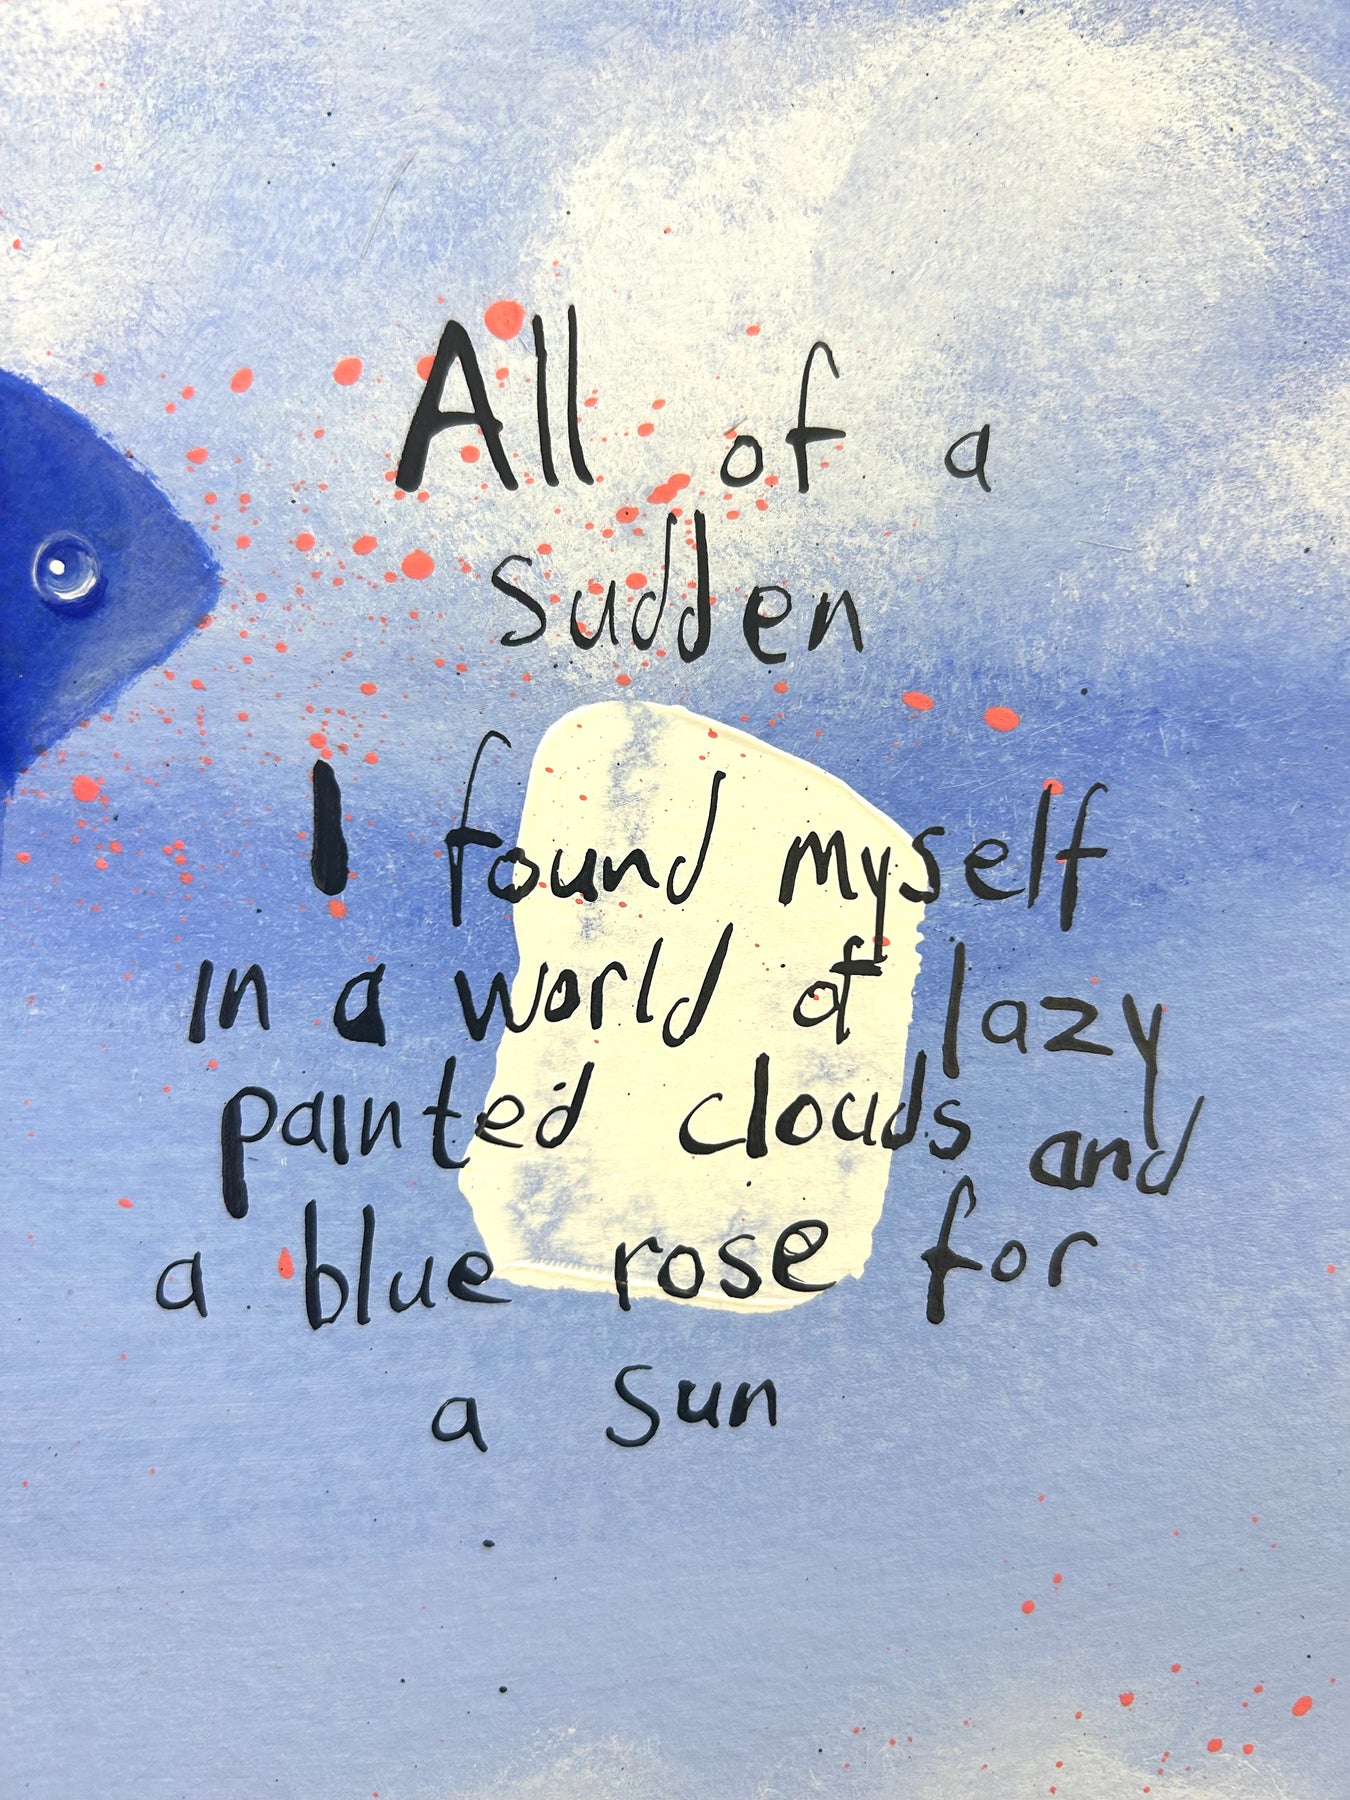 All of a
sudden
I found myself
in a world of lazy
painted clouds and
a blue rose for
a sun